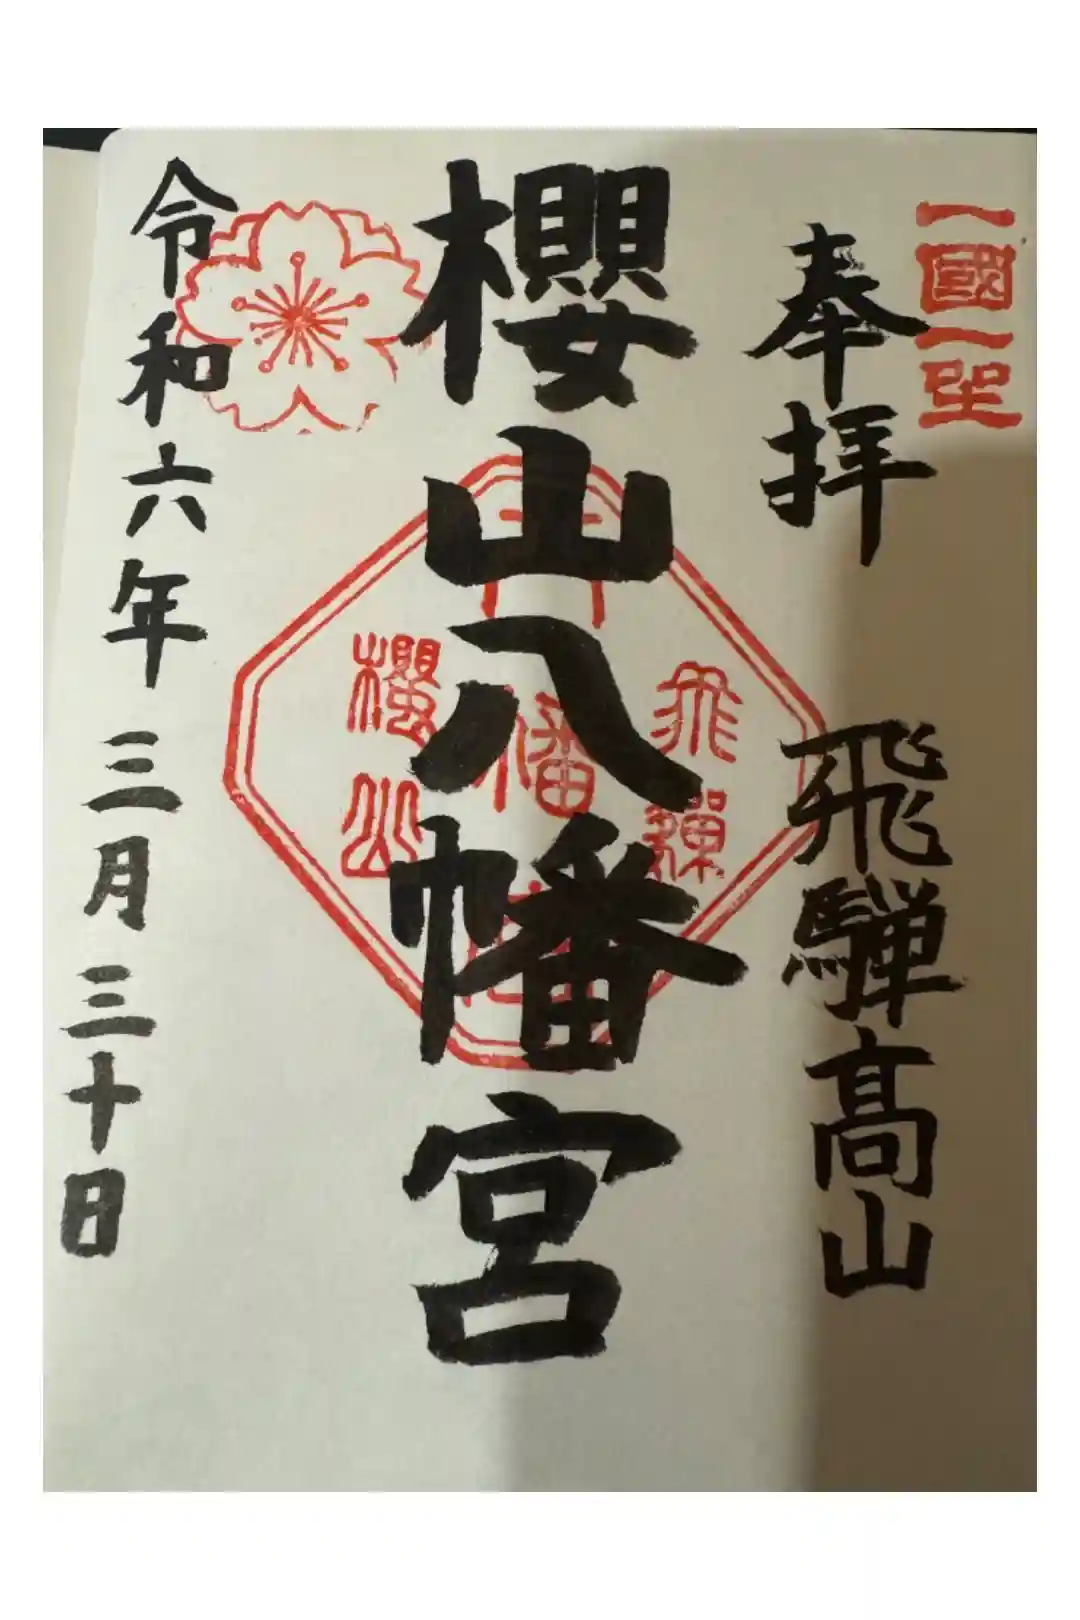 一國一社
奉拝　飛騨高山
飛騨
八幡
櫻山
櫻山八幡宮
令和六年三月三十日